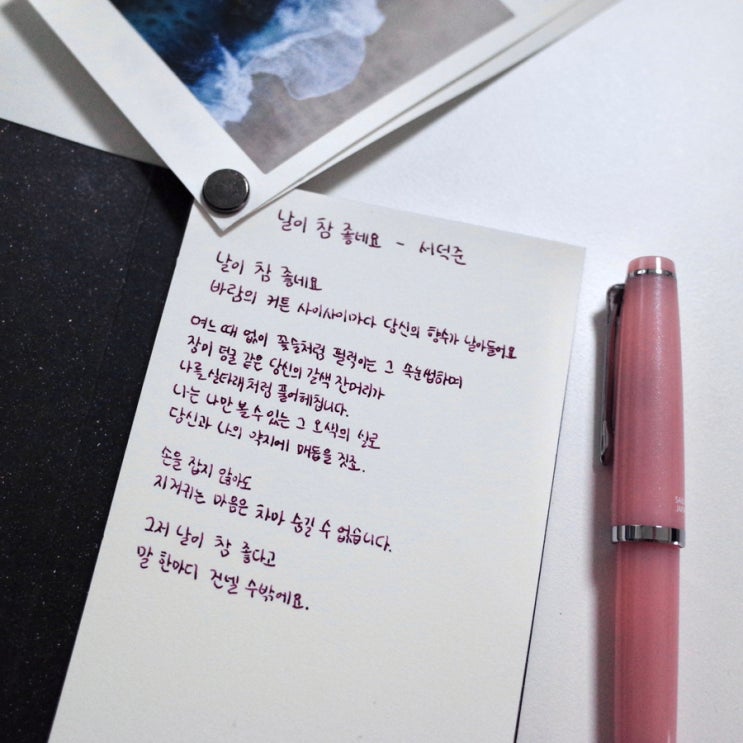 날이 참 좋네요 - 서덕준
날이 참 좋네요
바람의 커튼 사이사이마다 당신의 향수가 날아들어요
여느 때 없이 꽃술처럼 펄럭이는 그 속눈썹하며
장미 덩굴 같은 당신의 갈색 잔머리가
나를 실타래처럼 풀어헤칩니다.
나는 나만 볼 수 있는 그 오색의 실로
당신과 나의 약지에 매듭을 짓죠.
손을 잡지 않아도
지저귀는 마음은 차마 숨길 수 없습니다.
그저 날이 참 좋다고
말 한마디 건넬 수밖에요.